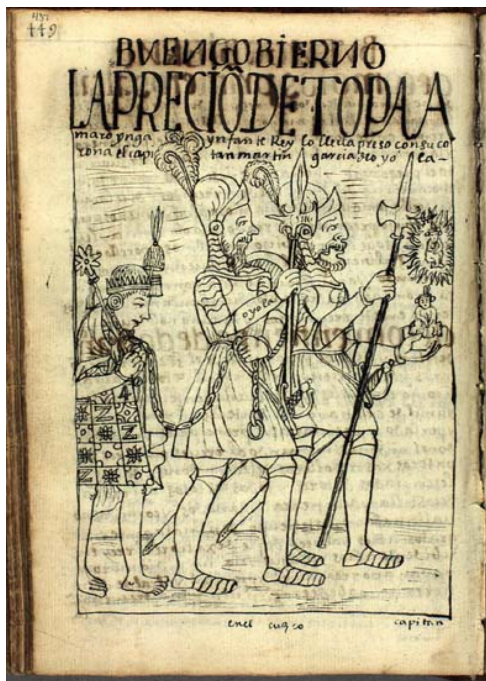 451
449
BVENGOBIERNO
LAPRECIÕDETOPAA
maro ynga ynfante Rey lo lleua preso con su co
rona el capitan martin garcia de oyola-
oyola
en el cuzco capitan